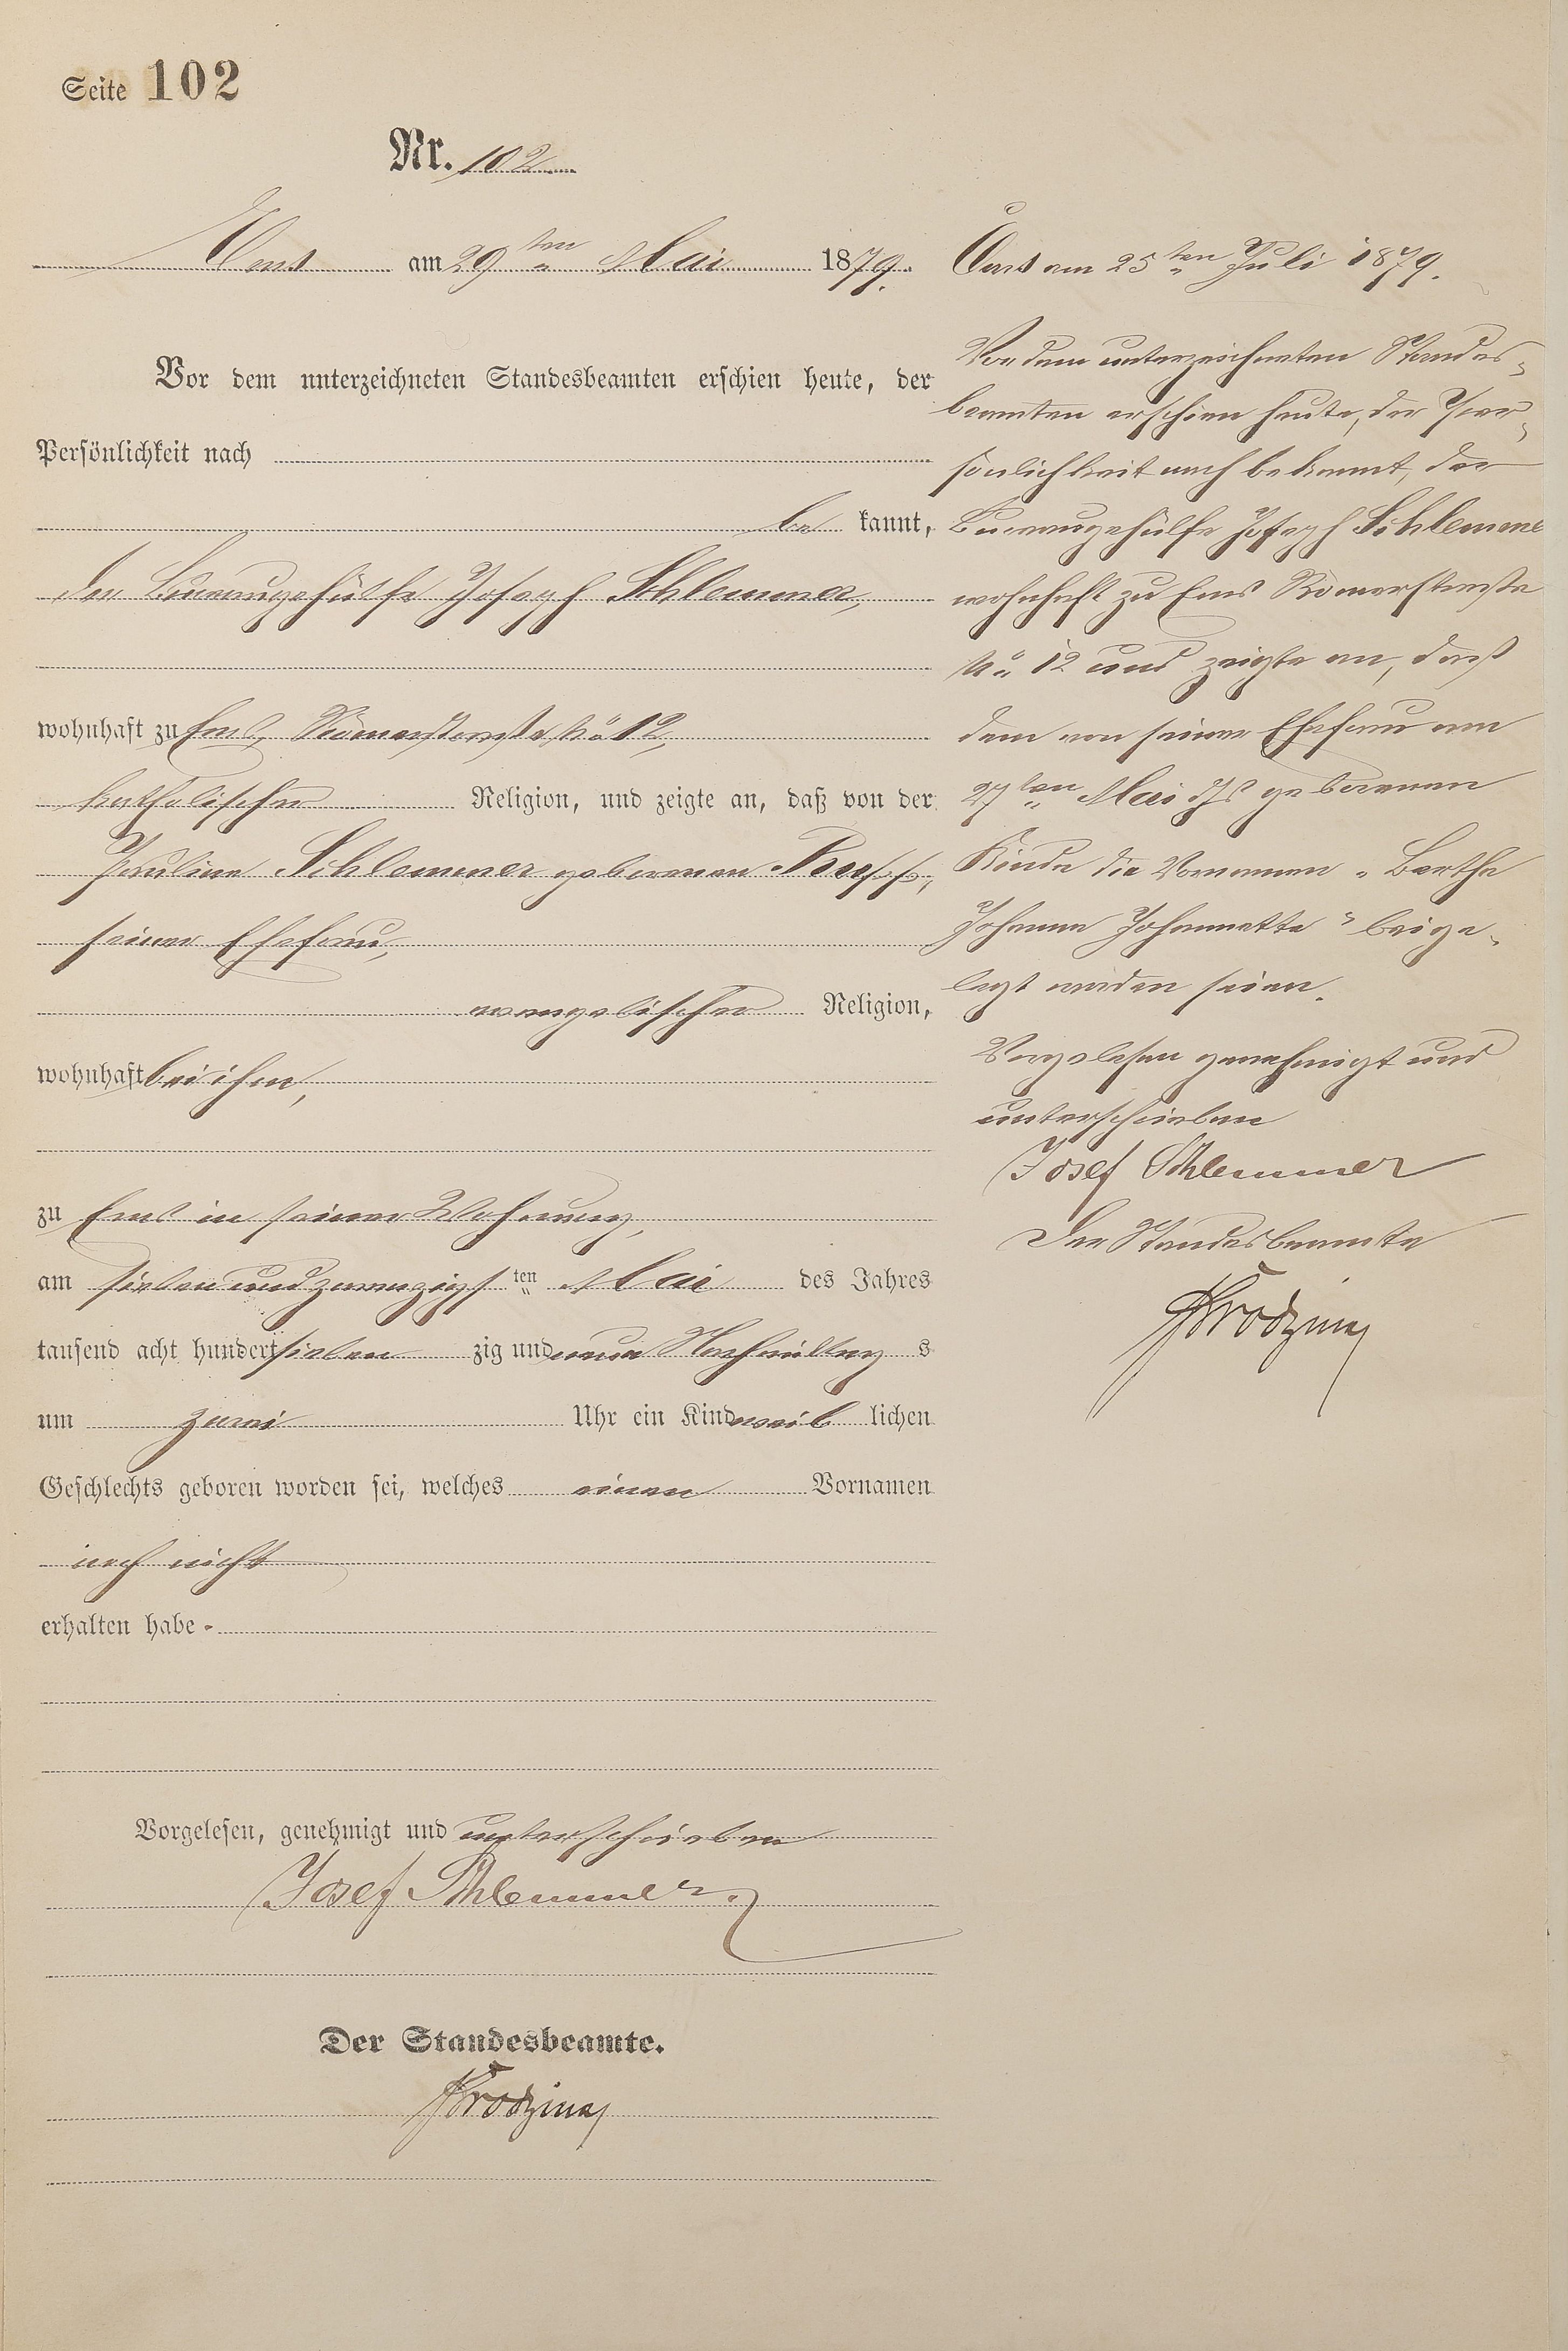 Seite 102
Nr. 102
Ems am 29ten Mai 1879.
Vor dem unterzeichneten Standesbeamten erschien heute, der
Persönlichkeit nach
be kannt,
der Bureaugehülfe Joseph Schlemmer,
wohnhaft zu Ems, Römerstraße No 12,
katholischer Religion, und zeigte an, daß von der
Pauline Schlemmer geborenen
seiner Ehefrau,
evangelischer Religion,
wohnhaft bei ihm,
zu Ems in seiner Wohnung,
am sieben und zwanzigsten Mai des Jahres
tausend acht hundert sieben zig und neun Nachmittag s
um zwei Uhr ein Kind weib lichen
Geschlechts geboren worden sei, welches einen Vornamen
noch nicht
erhalten habe.
Vorgelesen, genehmigt und unterschrieben
Josef Schlemmer.
Der Standesbeamte.
Ems am 25ten Juli 1879.
Vor dem unterzeichneten Standes-
beamten erschien heute, der Per-
sönlichkeit nach bekannt, der
Bureaugehülfe Joseph Schlemmer
wohnhaft zu Ems Römerstraße
No 12 und zeigte an, daß
dem von seiner Ehefrau am
27ten Mai ds Js geborenen
Kinde die Vornamen „Bertha
Johanna Johannette" beige-
legt worden seien.
Vorgelesen genehmigt und
unterschrieben
Josef Schlemmer
Der Standesbeamte